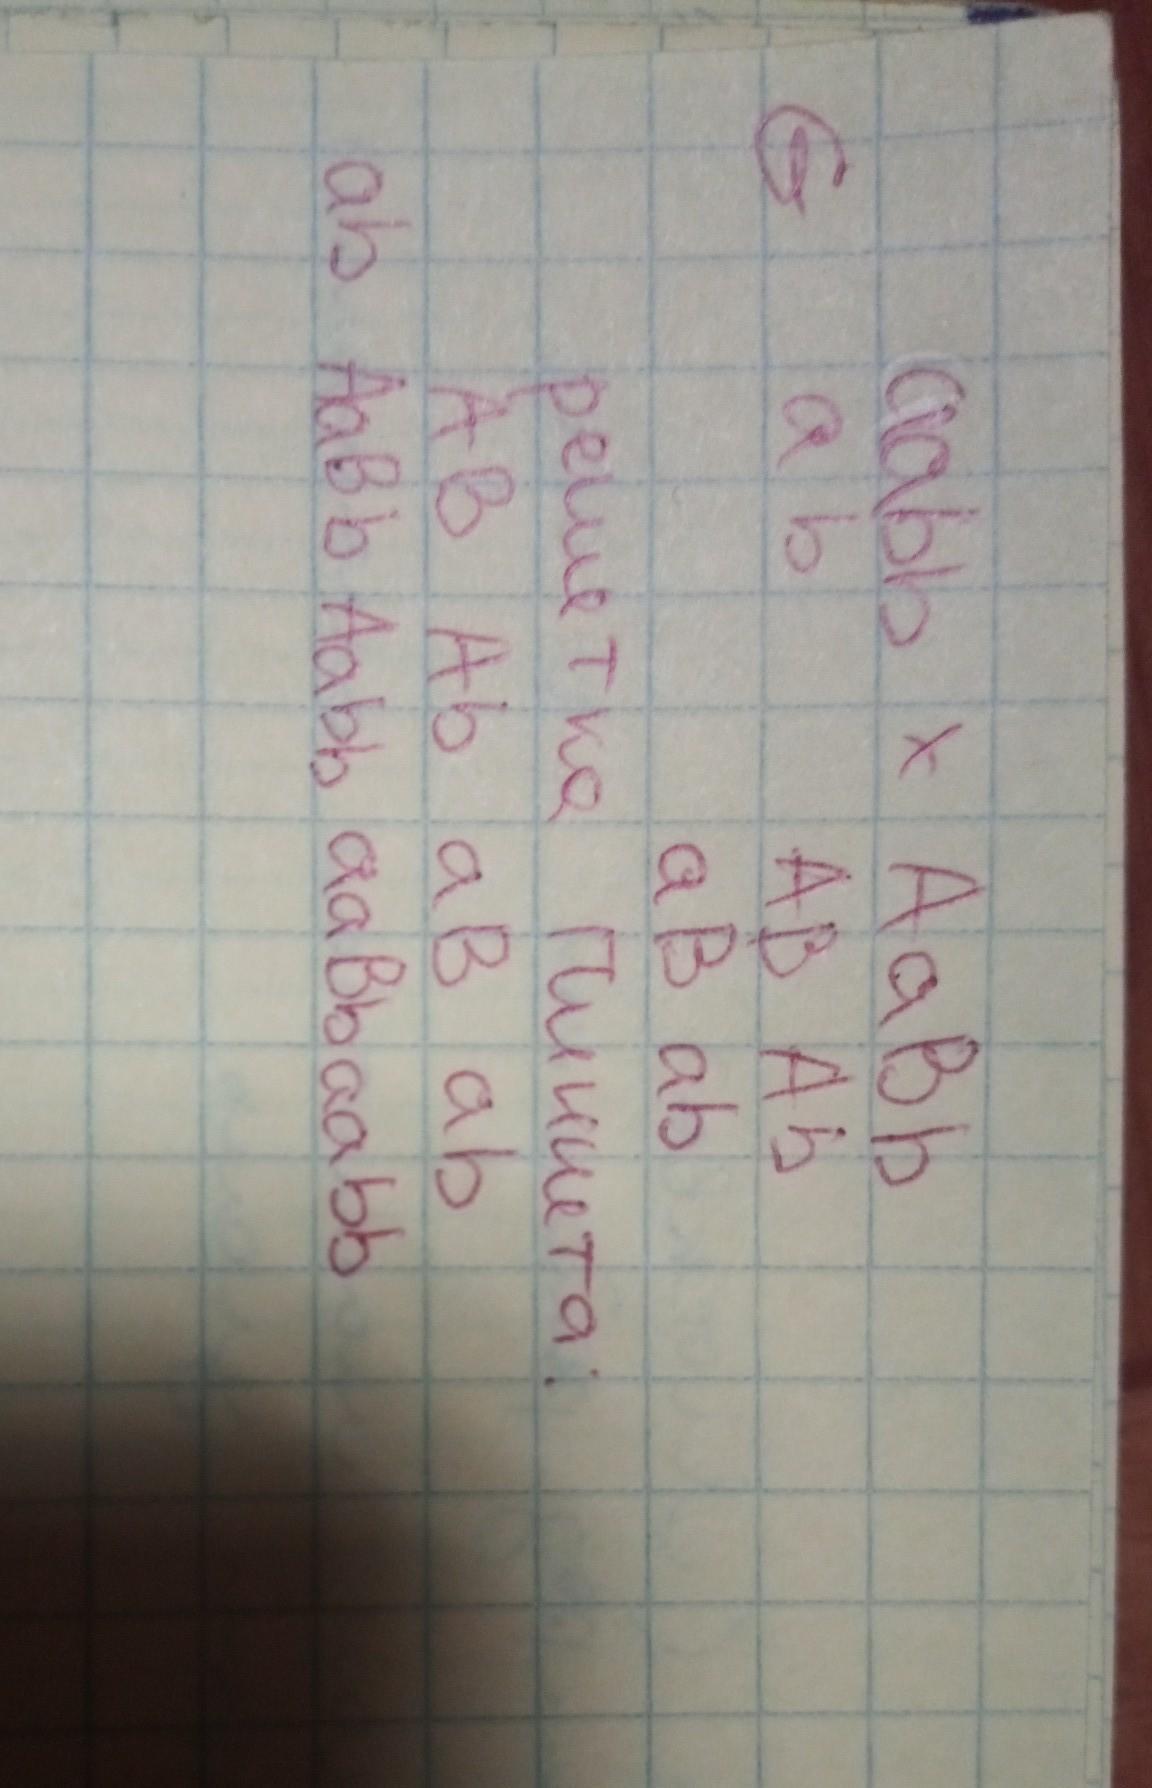 aabb x AaBb
G ab AB Ab
aB ab
решетка Пиннета:
AB Ab aB ab
ab AaBb Aabb aaBb aabb